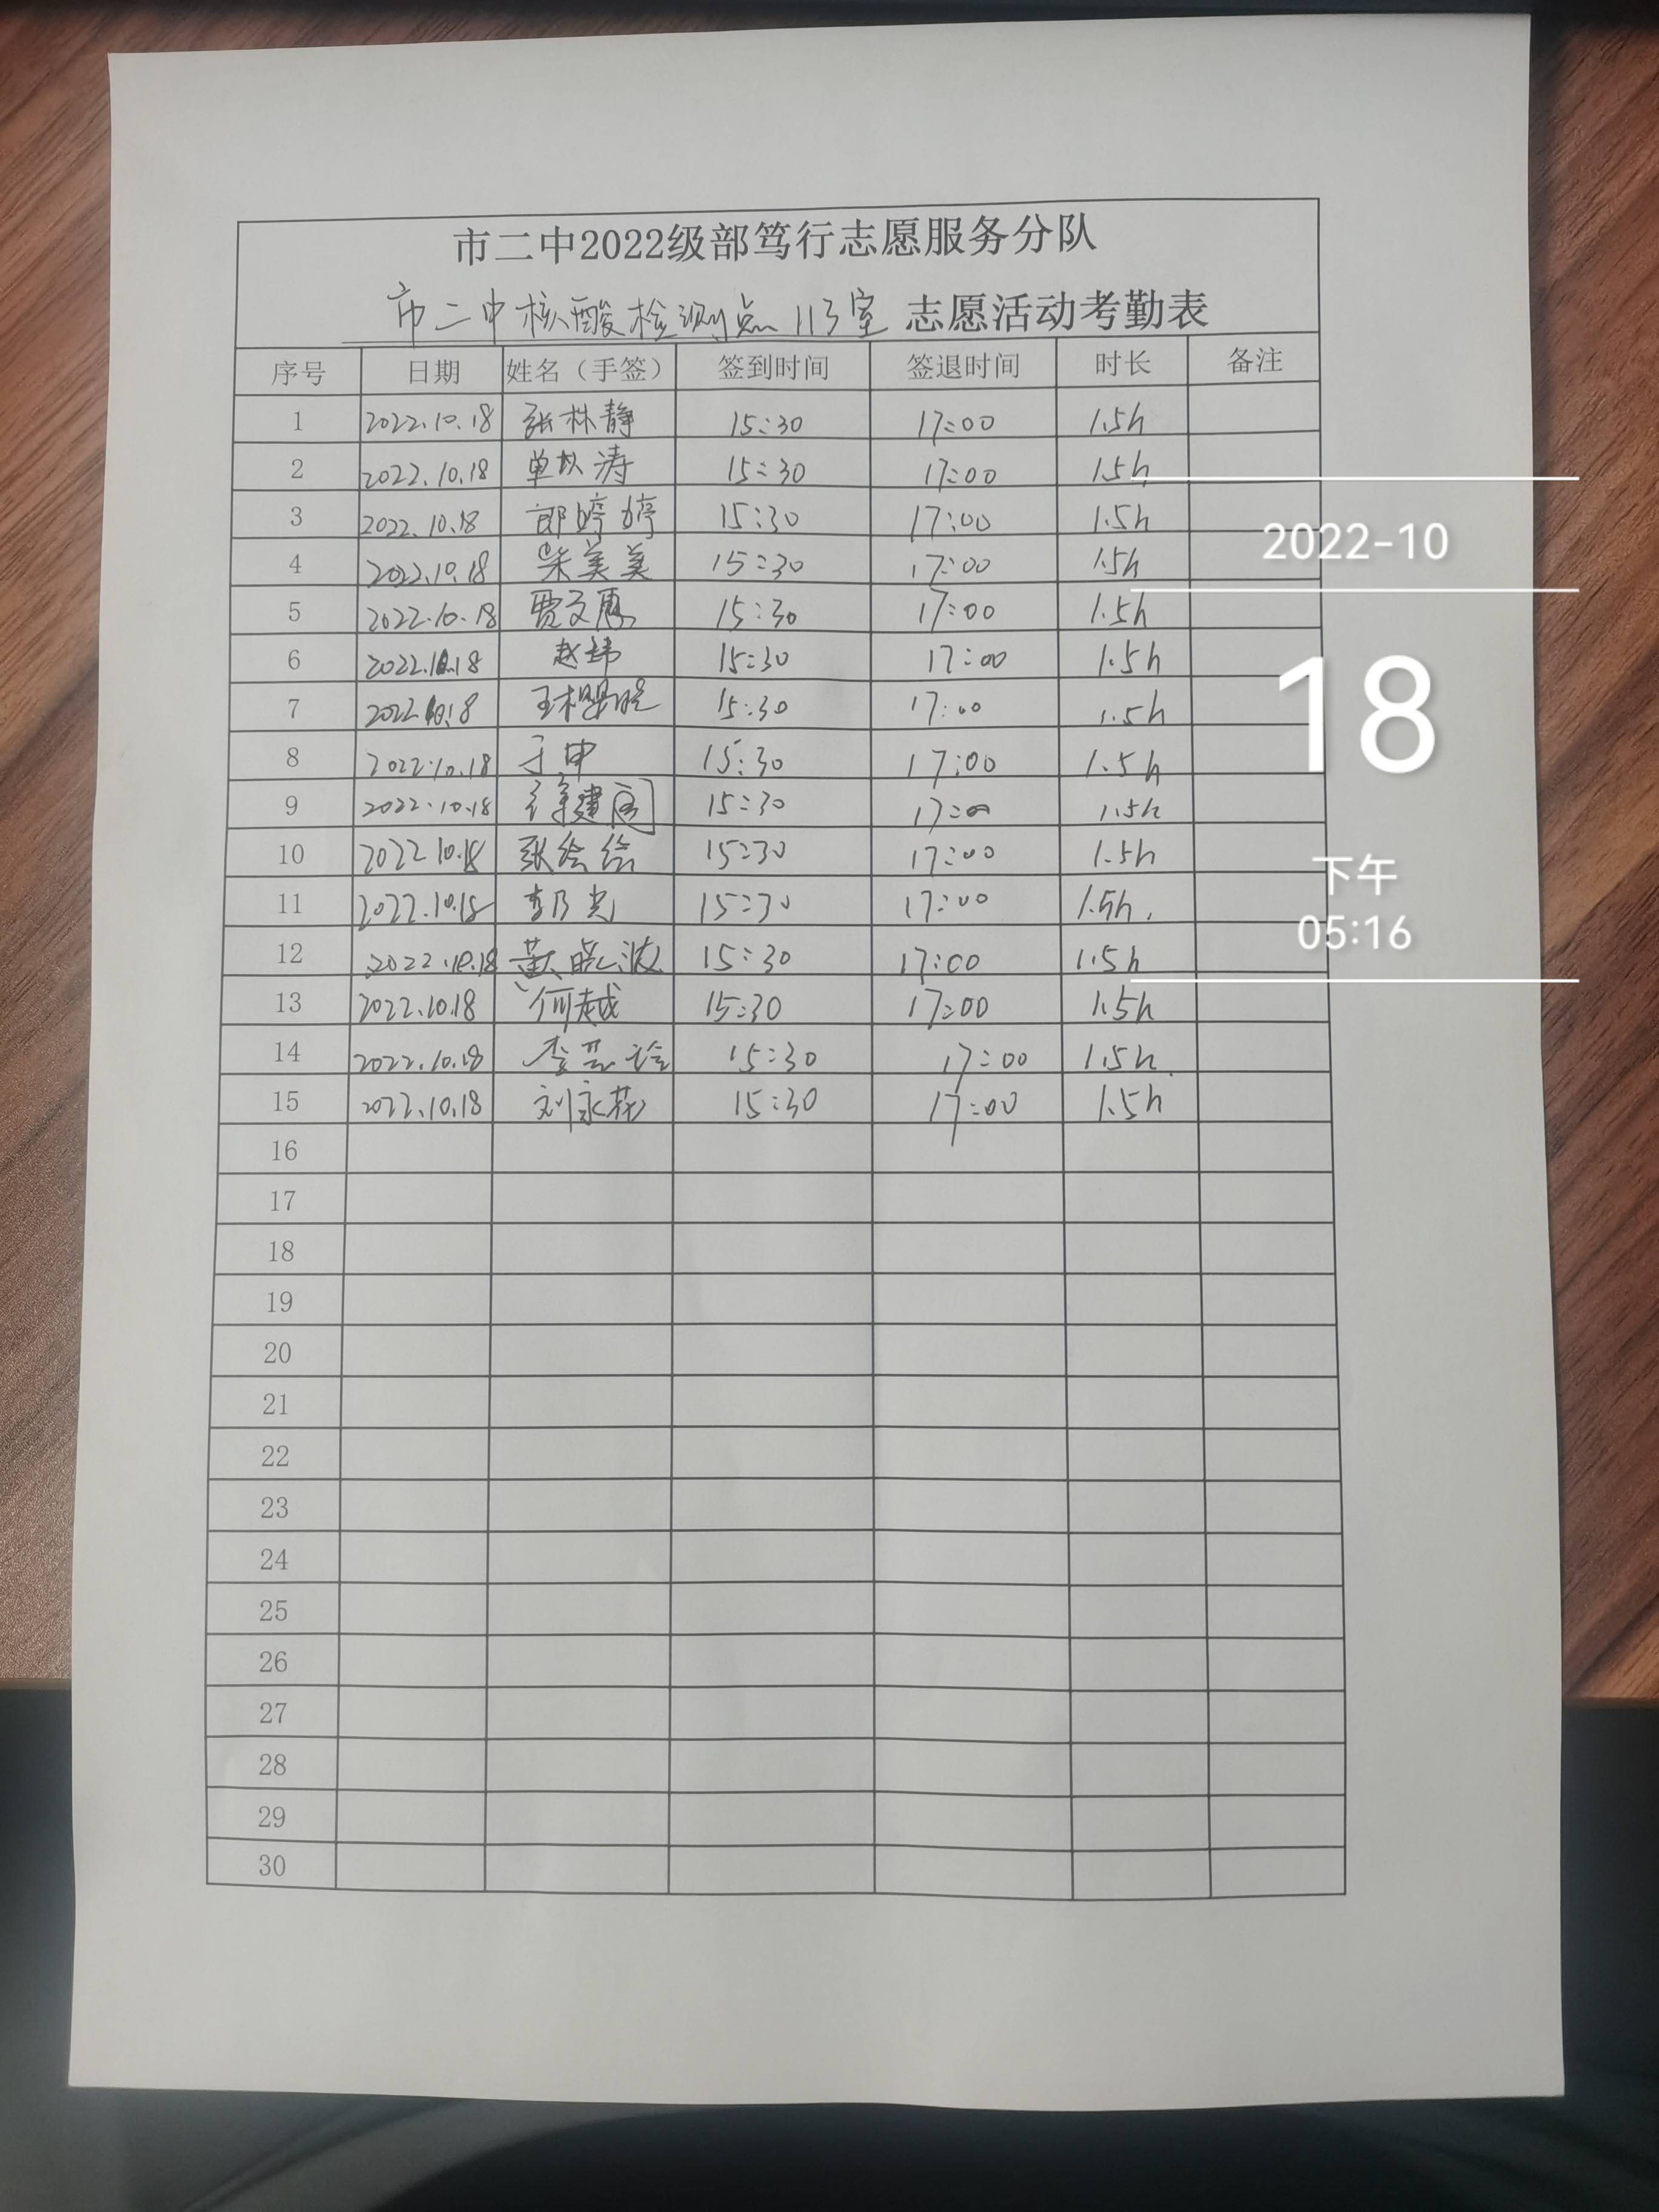 市二中2022级部笃行志愿服务分队
市二中核酸检测点113室 志愿活动考勤表
序号 日期 姓名（手签） 签到时间 签退时间 时长 备注
1 2022.10.18 张林静 15:30 17:00 1.5h
2 2022.10.18 单 涛 15:30 17:00 1.5h
3 2022.10.18 郎婷婷 15:30 17:00 1.5h
4 2022.10.18 柴美美 15:30 17:00 1.5h
5 2022.10.18 贾文 15:30 17:00 1.5h
6 2022.10.18 赵 15:30 17:00 1.5h
7 2022.10.18 王 15:30 17:00 1.5h
8 2022.10.18 于申 15:30 17:00 1.5h
9 2022.10.18 建 15:30 17:00 1.5h
10 2022.10.18 张绘绘 15:30 17:00 1.5h
11 2022.10.18 李乃 15:30 17:00 1.5h.
12 2022.10.18 黄晓波 15:30 17:00 1.5h
13 2022.10.18 何越 15:30 17:00 1.5h
14 2022.10.18 李 15:30 17:00 1.5h.
15 2022.10.18 刘永 15:30 17:00 1.5h
16
17
18
19
20
21
22
23
24
25
26
27
28
29
30
2022-10
18
下午
05:16